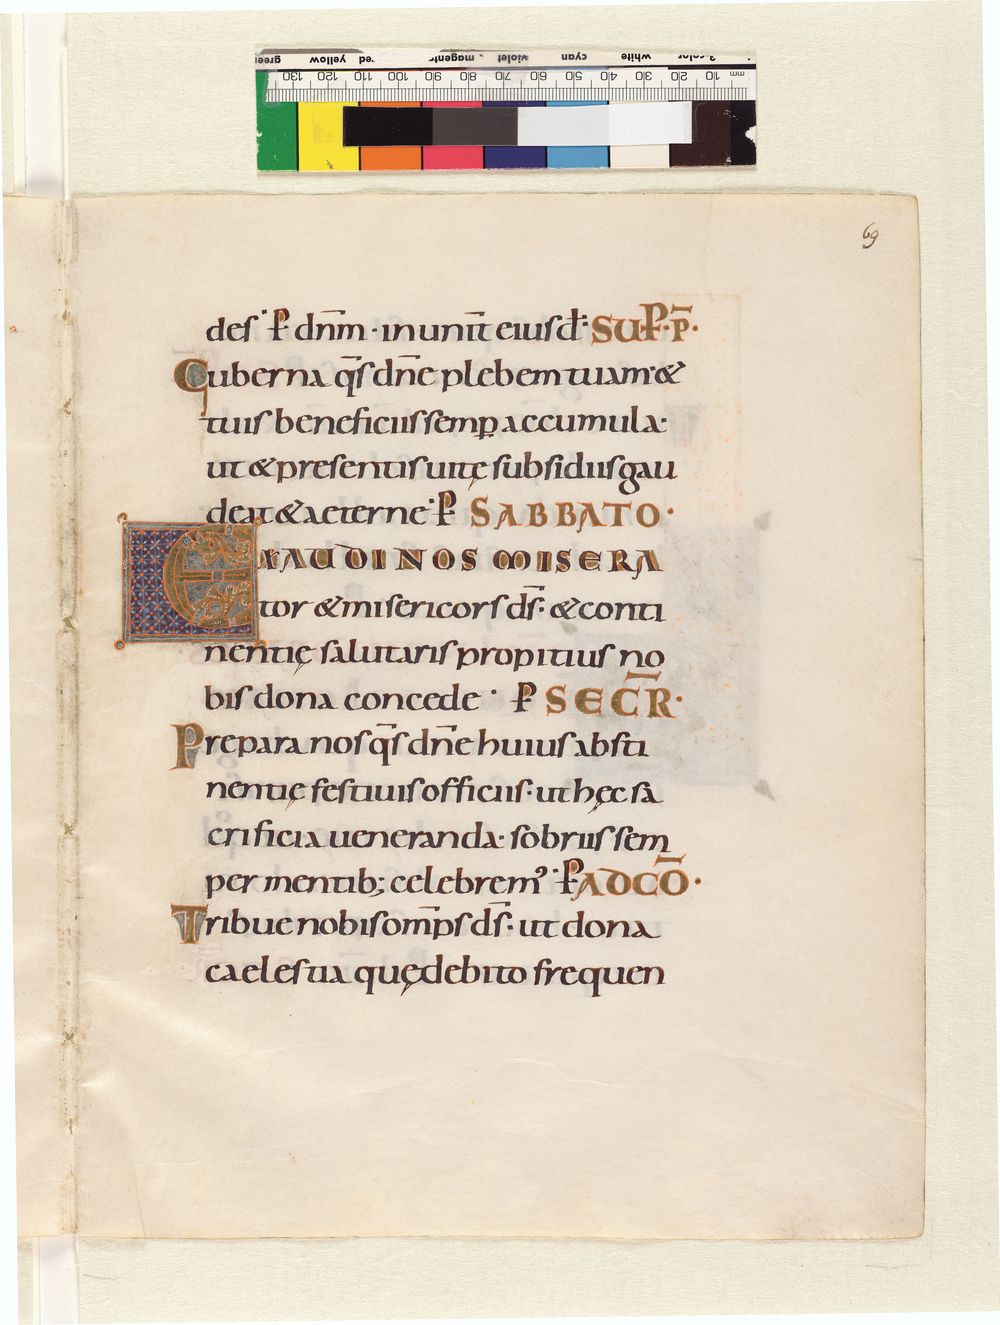 mm 10 20 30 40 50 60 70 80 90 100 110 120 130
white cyan violet magenta red yellow green
69
des· P dn̄m · in unit̄ eiusđ· SUP·P̄·
Guberna qs̄ dn̄e plebem tuam· &
tuis beneficiis semp̱ accumula·
ut & presentis uitę subsidiis gau
deat & aeterne· P SABBATO·
EXAUDI NOS MISERA
tor & misericors ds̄· & conti
nentię salutaris propitius no
bis dona concede · P SECR̄·
Prepara nos qs̄ dn̄e huius absti
nentię festiuis officiis· ut hęc sa
crificia ueneranda· sobriis sem
per mentib; celebrem᾿ · P AD CŌ·
Tribue nobis om̄ps ds̄· ut dona
caelestia quę debito frequen